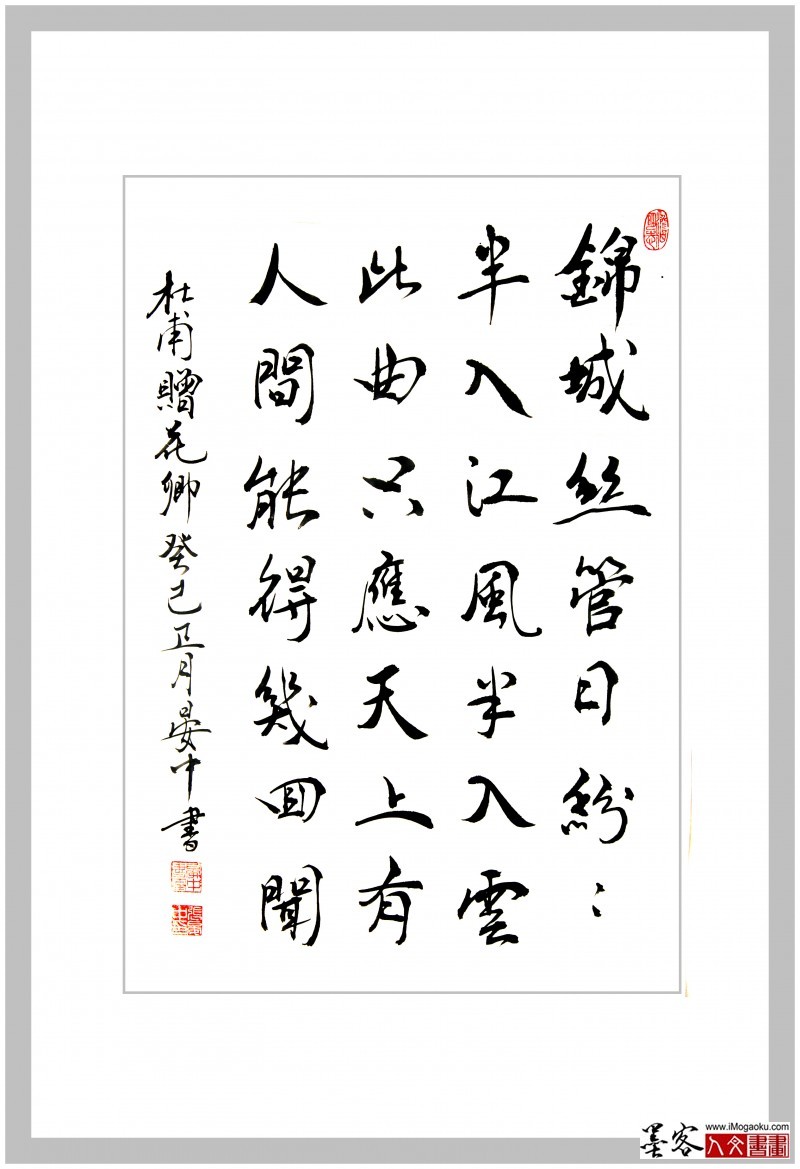 錦城丝管日紛〻
半入江風半入雲
此曲只應天上有
人間能得幾回聞
杜甫贈花卿 癸巳正月晏中書
墨客
www.iMogaoku.com
人文書畫